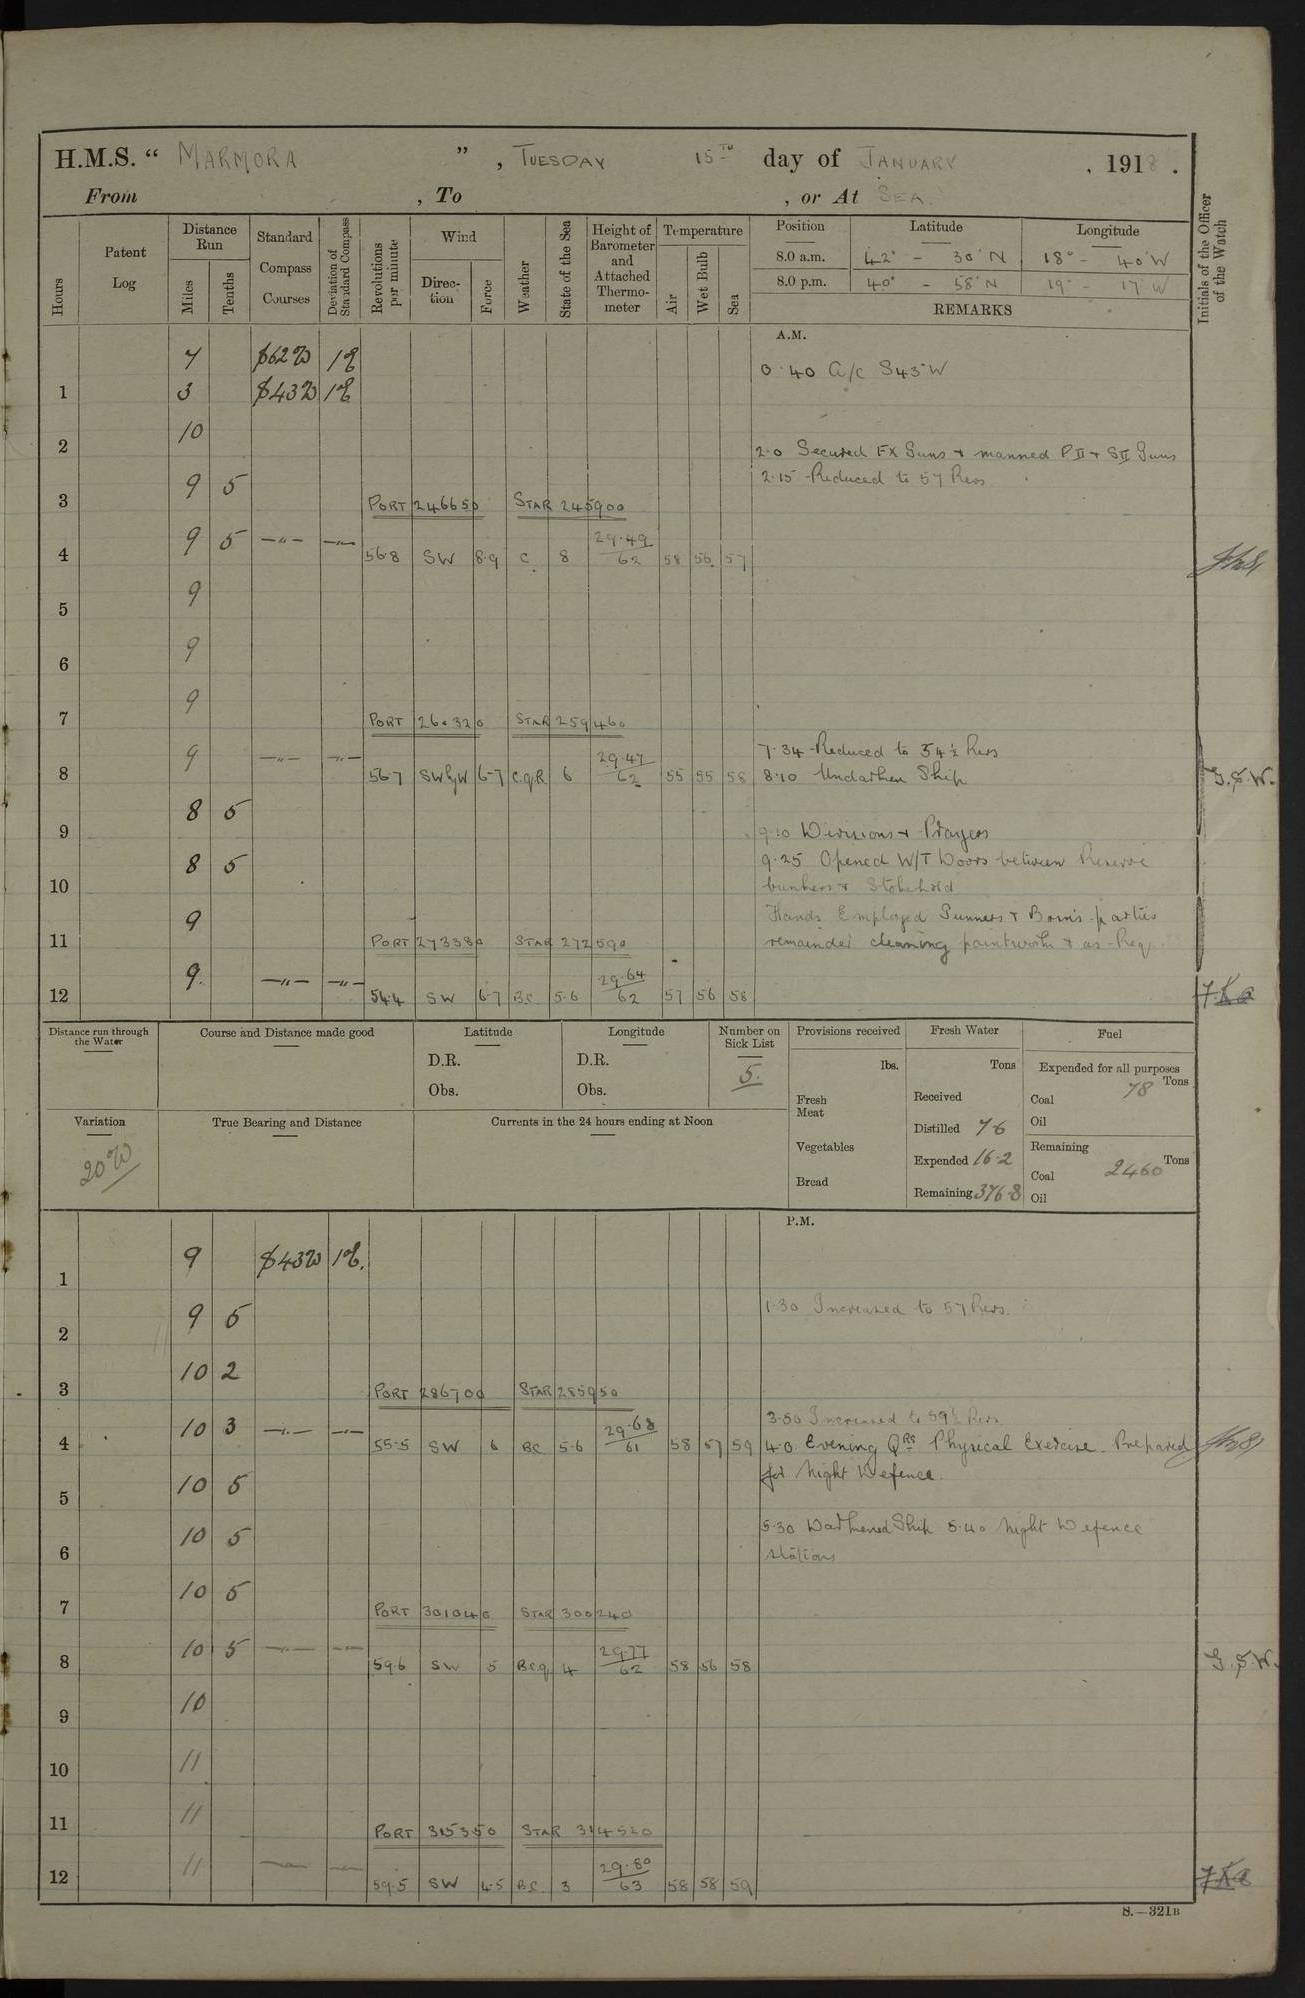 H.M.S. “ MARMORA ” , TUESDAY 15TH day of JANUARY , 1918 .
From , To , or At SEA.
Hours Patent Log Distance Run Miles Tenths Standard Compass Courses Deviation of Standard Compass Revolutions per minute Wind Direction Force Weather State of the Sea Height of Barometer and Attached Thermometer Temperature Air Wet Bulb Sea Position Latitude Longitude Initials of the Officer of the Watch
8.0 a.m. 42° - 30' N 18° - 40' W
8.0 p.m. 40° - 58' N 19° - 17' W
REMARKS
A.M.
7 S62W 1E
0.40 a/c S43°W
1 3 S43W 1E
2 10
2.0 Secured FX Guns + manned PII + SII Guns
2.15 Reduced to 57 Revs
3 9 5
PORT 246650 STAR 245900
4 9 5 —"— —"— 56.8 SW 8.9 C. 8 29.49/62 58 56 57
5 9
6 9
7 9
PORT 260320 STAR 259460
7.34 Reduced to 54½ Revs
8 9 —"— —"— 56.7 SWbyW 6-7 C.q.R 6 29.47/62 55 55 58 8.10 Undarken Ship G.S.W.
9 8 5
9.10 Divisions + Prayers
9.25 Opened W/T Doors between Reserve
10 8 5 bunkers + Stokehold
Hands Employed Gunners + Bosn's parties
11 9 remainder cleaning paintwork + as Req.
PORT 273380 STAR 272590
12 9. —"— —"— 54.4 SW 6-7 BC 5.6 29.64/62 57 56 58
Distance run through the Water Course and Distance made good Latitude Longitude Number on Sick List Provisions received Fresh Water Fuel
D.R. D.R. 5. lbs. Tons Expended for all purposes Tons
Obs. Obs. Fresh Meat Received Coal 78
Variation True Bearing and Distance Currents in the 24 hours ending at Noon Distilled 7.6 Oil
20W Vegetables Expended 16.2 Remaining Tons
Coal 2460
Bread Remaining 376.8 Oil
P.M.
1 9 S43W 1E.
1.30 Increased to 57 Revs.
2 9 5
3 10 2
PORT 286700 STAR 285950
3.50 Increased to 59½ Revs
4 10 3 —"— —"— 55.5 SW 6 BC 5.6 29.68/61 58 57 59 4.0 Evening QRS Physical Exercise. Prepared
for Night Defence.
5 10 5
5.30 Darkened Ship 5.40 Night Defence
6 10 5 Stations
7 10 5
PORT 301040 STAR 300240
8 10 5 —"— —"— 59.6 SW 5 BCq 4 29.77/62 58 56 58 G.S.W.
9 10
10 11
11 11
PORT 315350 STAR 314520
12 11 —"— —"— 59.5 SW 4.5 BC 3 29.80/63 58 58 59
S.—321B